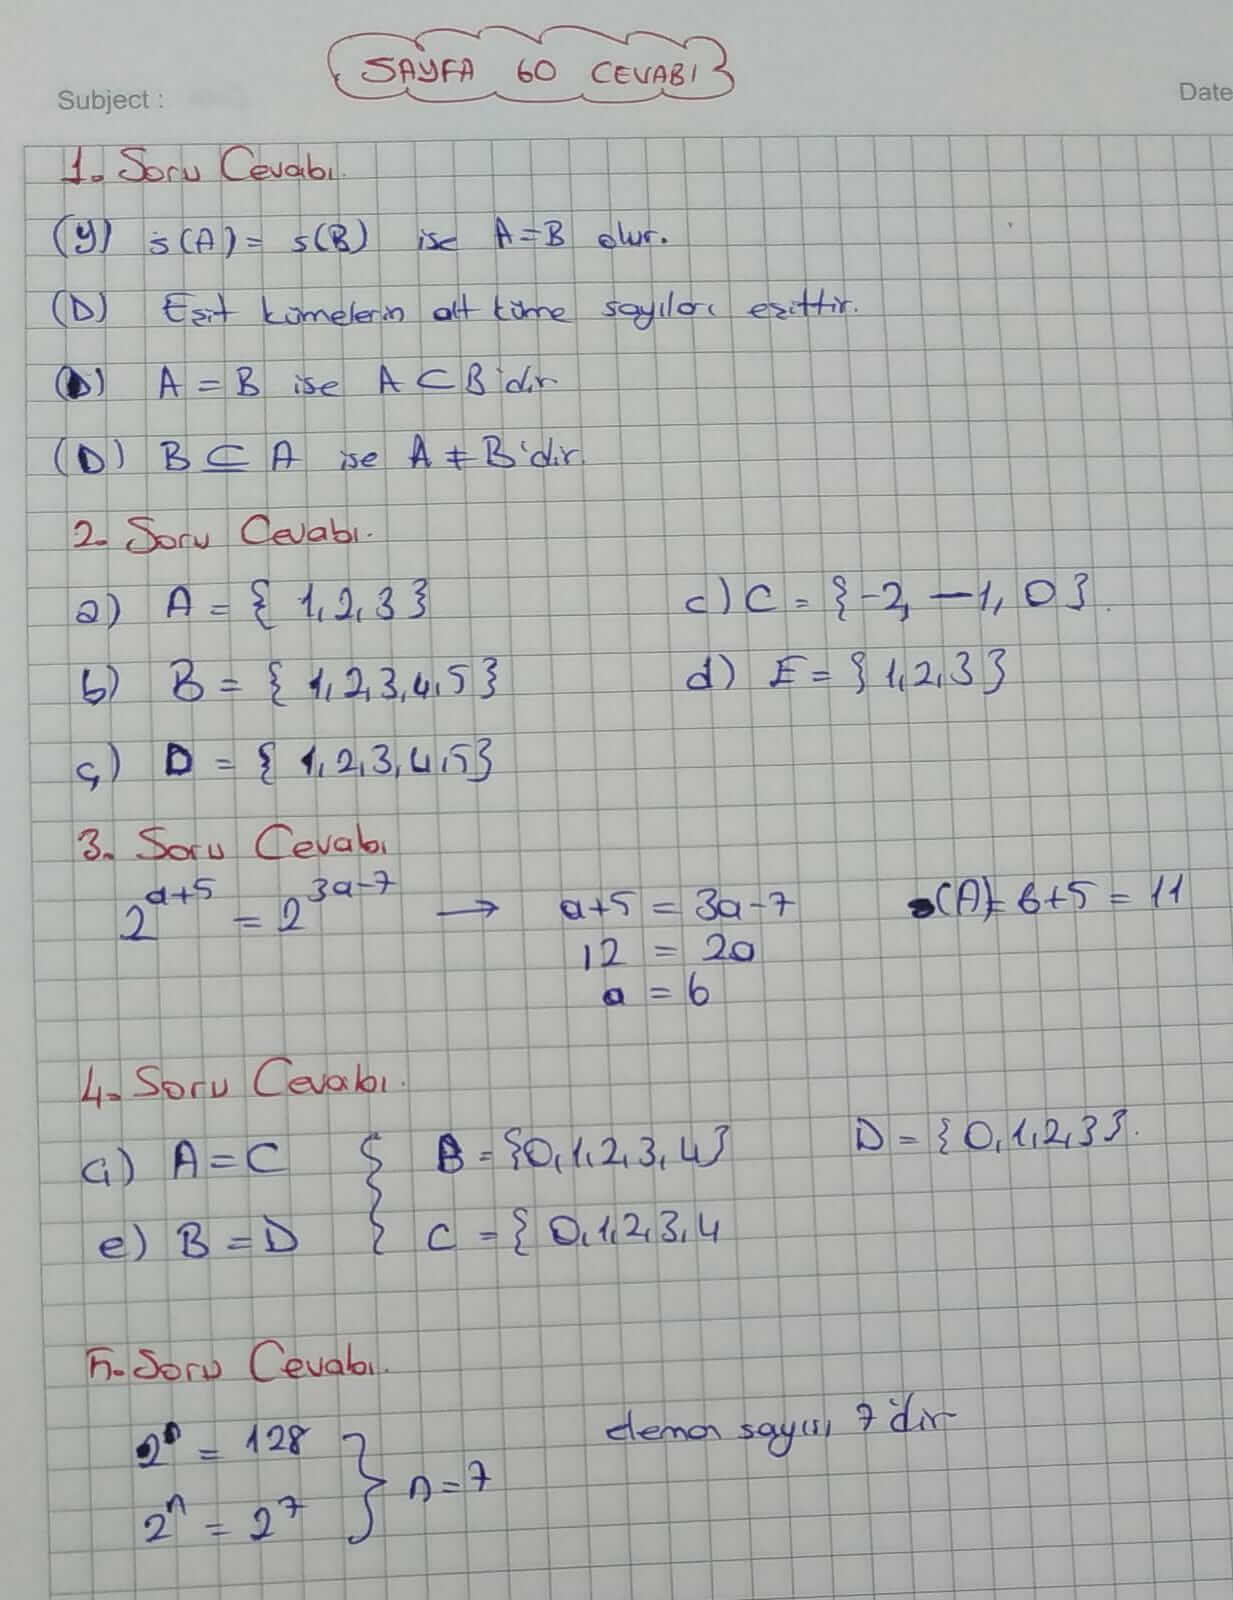 SAYFA 60 CEVABI
Subject :
Date
1. Soru Cevabı.
(y) s(A) = s(B) ise A=B olur.
(D) Eşit kümelerin alt küme sayıları eşittir.
(D) A = B ise A ⊂ B'dir
(D) B ⊂ A ise A ≠ B'dir.
2. Soru Cevabı.
a) A = { 1,2,3 }
c) C = {-2, -1, 0 }.
b) B = { 1,2,3,4,5 }
d) E = { 1,2,3 }
ç) D = { 1,2,3,4,5 }
3. Soru Cevabı
2^(a+5) = 2^(3a-7) → a+5 = 3a-7
s(A) = 6+5 = 11
12 = 2a
a = 6
4. Soru Cevabı.
ç) A = C
B = {0,1,2,3,4}
D = { 0,1,2,3 }.
e) B = D
C = { 0,1,2,3,4
5. Soru Cevabı.
2^n = 128
2^n = 2^7
n = 7
eleman sayısı 7'dir